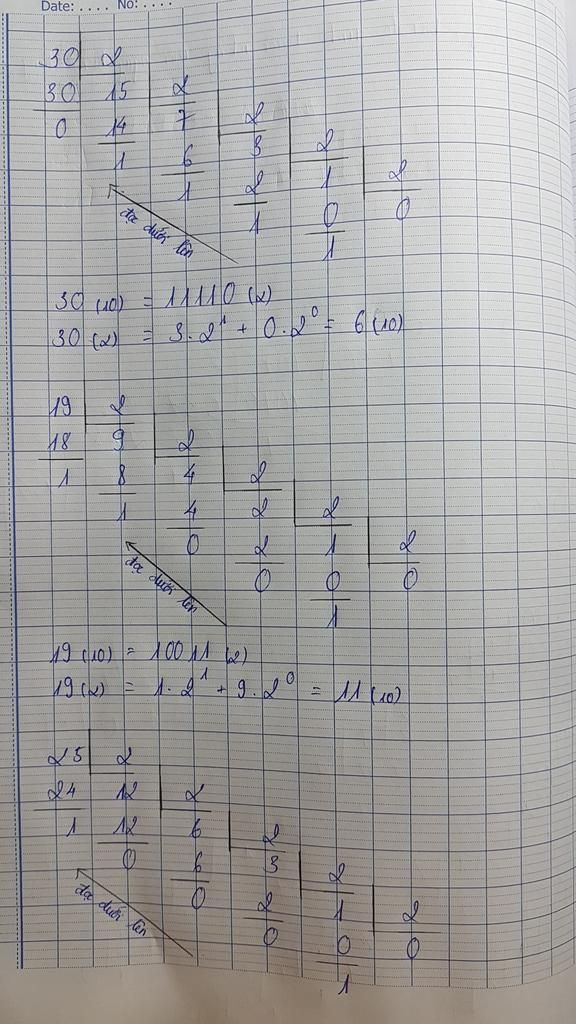 Date: . . . . No: . . . .
30 2
30 15 2
0 14 7 2
1 6 3 2
1 2 1 2
1 0 0
1
đọc dưới lên
30 (10) = 11110 (2)
30 (2) = 3 . 2^1 + 0 . 2^0 = 6 (10)
19 2
18 9 2
1 8 4 2
1 4 2 2
0 2 1 2
0 0 0
1
đọc dưới lên
19 (10) = 10011 (2)
19 (2) = 1 . 2^1 + 9 . 2^0 = 11 (10)
25 2
24 12 2
1 12 6 2
0 6 3 2
0 2 1 2
0 0 0
1
đọc dưới lên